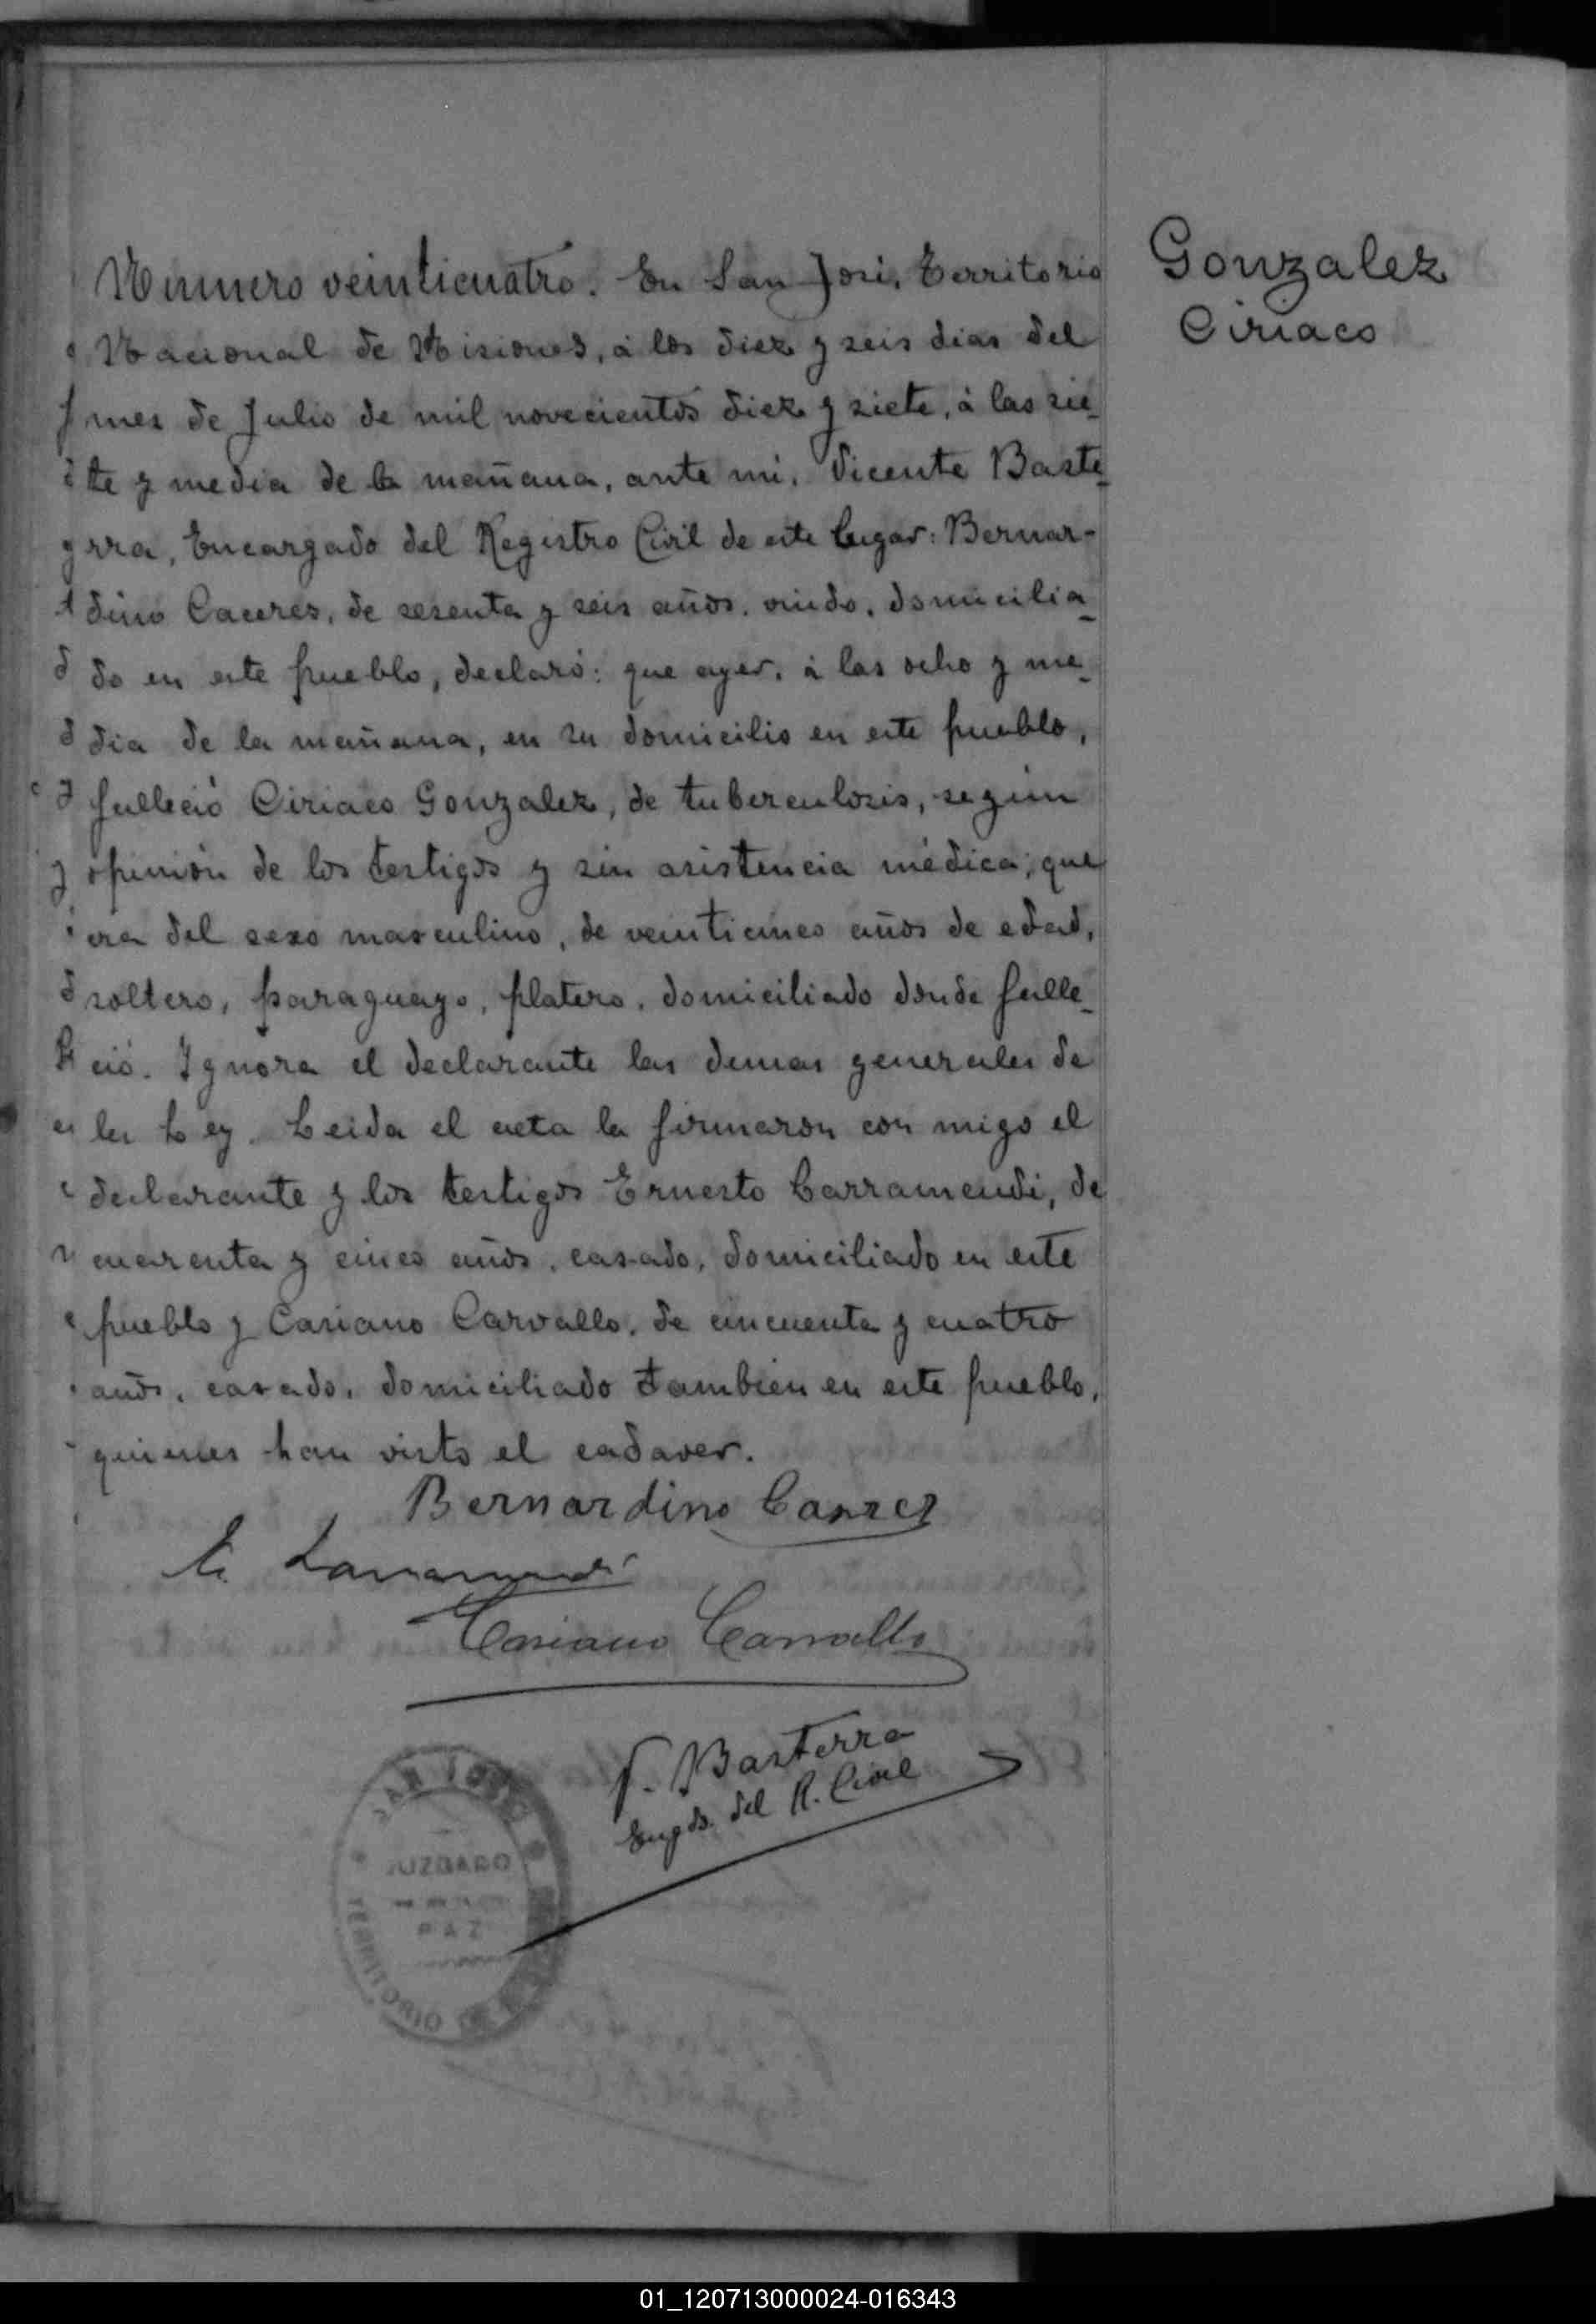 Gonzalez
Ciriaco
Numero veinticuatro. En San José, Territorio
Nacional de Misiones, á los diez y seis dias del
mes de Julio de mil novecientos diez y siete, á las sie-
te y media de la mañana, ante mí, Vicente Baste-
rra, Encargado del Registro Civil de este lugar: Bernar-
dino Caceres, de sesenta y seis años, viudo, domicilia-
do en este pueblo, declaró: que ayer, á las ocho y me-
dia de la mañana, en su domicilio en este pueblo,
falleció Ciriaco Gonzalez, de tuberculosis, según
opinión de los testigos y sin asistencia médica; que
era del sexo masculino, de veinticinco años de edad,
soltero, paraguayo, platero, domiciliado donde falle-
ció. Ignora el declarante las demas generales de
la Ley. Leida el acta la firmaron con migo el
declarante y los testigos Ernesto Larramendi, de
cuarenta y cinco años, casado, domiciliado en este
pueblo y Casiano Carvallo, de cincuenta y cuatro
años, casado, domiciliado tambien en este pueblo,
quienes han visto el cadaver.
Bernardino Caszes
E. Larramendi
Casiano Carvallo
V. Basterra
Engdo. del R. Civil
SAN JOSE
JUZGADO
PAZ
TERRITORIO DE
01_120713000024-016343